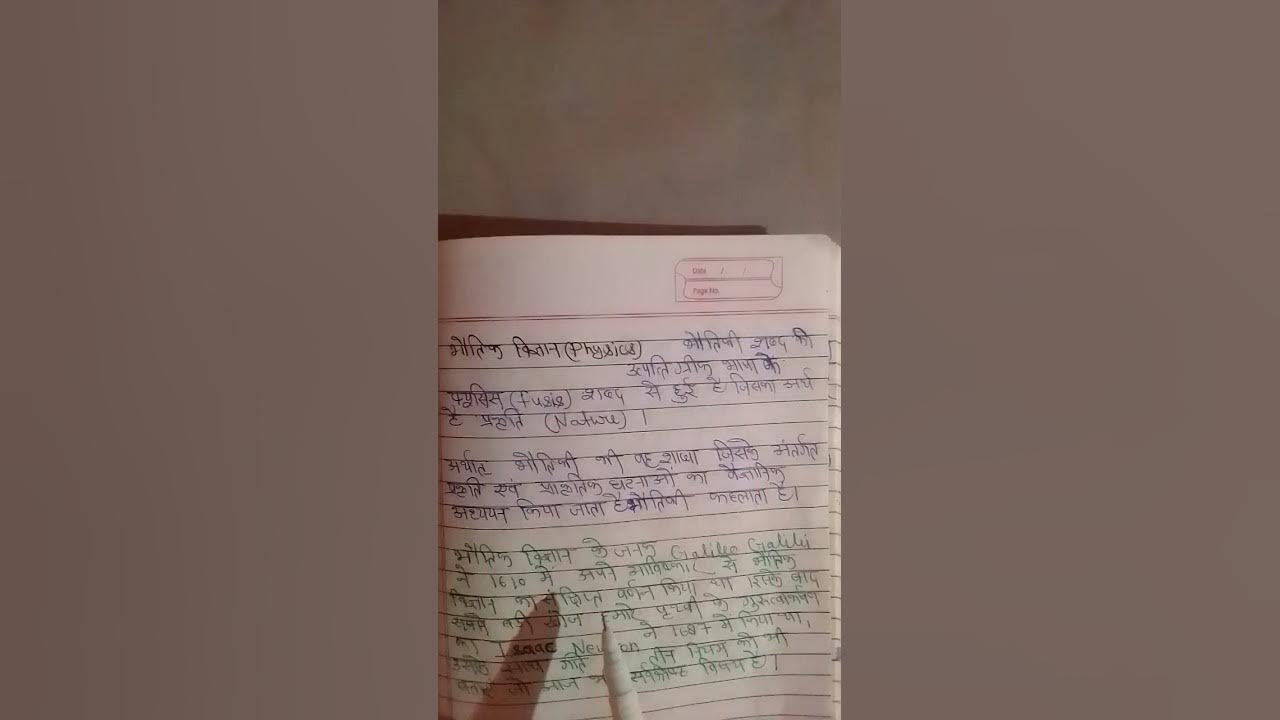 Date / /
Page No.
भौतिक विज्ञान (Physics) भौतिकी शब्द की
उत्पत्ति ग्रीक भाषा के
फ्यूसिस (fusis) शब्द से हुई है जिसका अर्थ
है प्रकृति (Nature) ।
अर्थात् भौतिकी की वह शाखा जिसके अंतर्गत
प्रकृति एवं प्राकृतिक घटनाओं का वैज्ञानिक
अध्ययन किया जाता है भौतिकी कहलाता है।
भौतिक विज्ञान के जनक Galileo Galilei
ने 1610 में अपने आविष्कार से भौतिक
विज्ञान का संक्षिप्त वर्णन किया था इसके बाद
सबसे बड़ी खोज हमारे पृथ्वी के गुरुत्वाकर्षण
का Isaac Newton ने 1687 में किया था,
उसके साथ गति तीन नियम को भी
बताए जो आज विषय है।